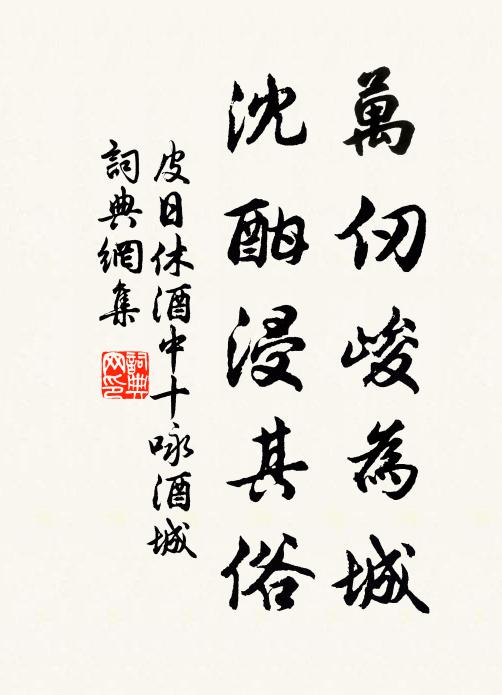 萬仞峻為城
沈酣浸其俗
皮日休酒中十咏酒城
詞典網集
詞典网印